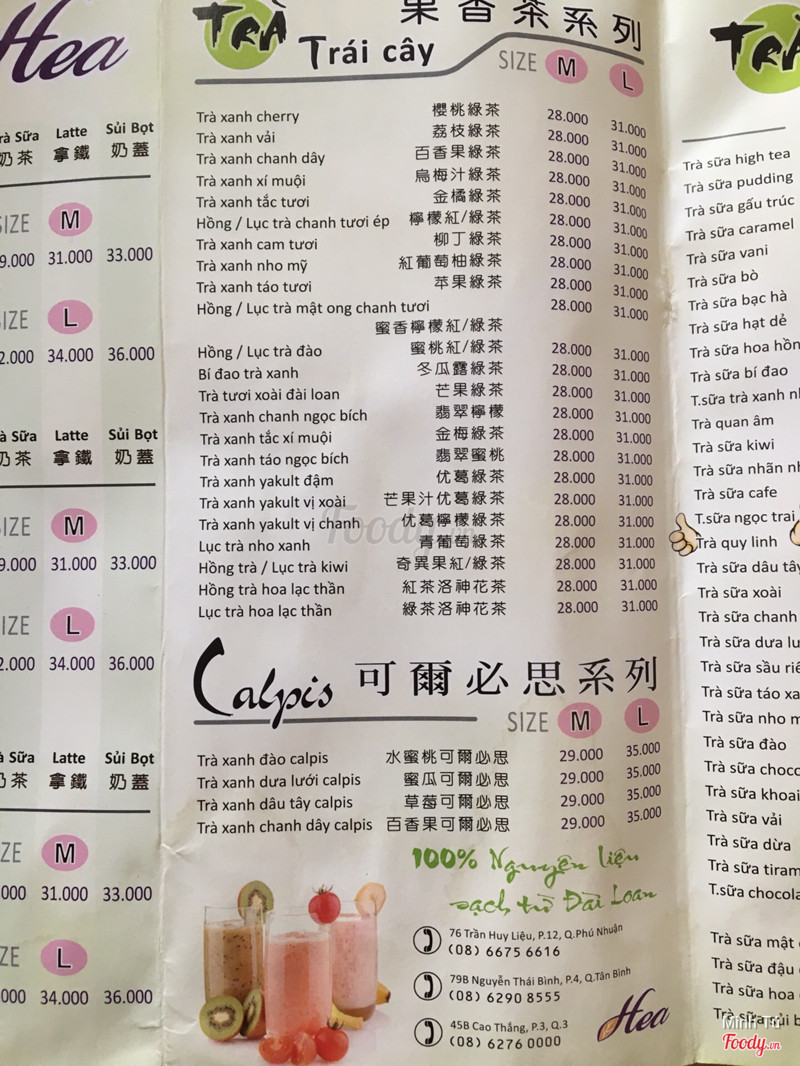 Hea
Trà Sữa Latte Sủi Bọt
奶茶 拿鐵 奶蓋
SIZE M
31.000 33.000
SIZE L
34.000 36.000
Trà Sữa Latte Sủi Bọt
奶茶 拿鐵 奶蓋
SIZE M
31.000 33.000
SIZE L
34.000 36.000
Sữa Latte Sủi Bọt
奶茶 拿鐵 奶蓋
M
31.000 33.000
L
34.000 36.000
TRÀ 果香茶系列
Trái cây SIZE M L
Trà xanh cherry 櫻桃綠茶 28.000 31.000
Trà xanh vải 荔枝綠茶 28.000 31.000
Trà xanh chanh dây 百香果綠茶 28.000 31.000
Trà xanh xí muội 烏梅汁綠茶 28.000 31.000
Trà xanh tắc tươi 金橘綠茶 28.000 31.000
Hồng / Lục trà chanh tươi ép 檸檬紅/綠茶 28.000 31.000
Trà xanh cam tươi 柳丁綠茶 28.000 31.000
Trà xanh nho mỹ 紅葡萄柚綠茶 28.000 31.000
Trà xanh táo tươi 苹果綠茶 28.000 31.000
Hồng / Lục trà mật ong chanh tươi 28.000 31.000
蜜香檸檬紅/綠茶
Hồng / Lục trà đào 蜜桃紅/綠茶 28.000 31.000
Bí đao trà xanh 冬瓜露綠茶 28.000 31.000
Trà tươi xoài đài loan 芒果綠茶 28.000 31.000
Trà xanh chanh ngọc bích 翡翠檸檬 28.000 31.000
Trà xanh tắc xí muội 金梅綠茶 28.000 31.000
Trà xanh táo ngọc bích 翡翠蜜桃 28.000 31.000
Trà xanh yakult đậm 优葛綠茶 28.000 31.000
Trà xanh yakult vị xoài 芒果汁优葛綠茶 28.000 31.000
Trà xanh yakult vị chanh 优葛檸檬綠茶 28.000 31.000
Lục trà nho xanh 青葡萄綠茶 28.000 31.000
Hồng trà / Lục trà kiwi 奇異果紅/綠茶 28.000 31.000
Hồng trà hoa lạc thần 紅茶洛神花茶 28.000 31.000
Lục trà hoa lạc thần 綠茶洛神花茶 28.000 31.000
Foody.vn
Calpis 可爾必思系列
SIZE M L
Trà xanh đào calpis 水蜜桃可爾必思 29.000 35.000
Trà xanh dưa lưới calpis 蜜瓜可爾必思 29.000 35.000
Trà xanh dâu tây calpis 草莓可爾必思 29.000 35.000
Trà xanh chanh dây calpis 百香果可爾必思 29.000 35.000
100% Nguyên liệu
sạch từ Đài Loan
76 Trần Huy Liệu, P.12, Q.Phú Nhuận
(08) 6675 6616
79B Nguyễn Thái Bình, P.4, Q.Tân Bình
(08) 6290 8555
45B Cao Thắng, P.3, Q.3
(08) 6276 0000
Hea
TRÀ
Trà sữa high tea
Trà sữa pudding
Trà sữa gấu trúc
Trà sữa caramel
Trà sữa vani
Trà sữa bò
Trà sữa bạc hà
Trà sữa hạt dẻ
Trà sữa hoa
Trà sữa bí đao
T.sữa trà xanh
Trà quan âm
Trà sữa kiwi
Trà sữa nhãn
Trà sữa cafe
T.sữa ngọc trai
Trà quy linh
Trà sữa dâu tây
Trà sữa xoài
Trà sữa chanh
Trà sữa dưa
Trà sữa sầu
Trà sữa táo
Trà sữa nho
Trà sữa đào
Trà sữa
Trà sữa khoai
Trà sữa vải
Trà sữa dừa
Trà sữa
T.sữa
Trà sữa mật
Trà sữa đậu
Trà sữa hoa
Trà sữa sủi
Minh Tú
Foody.vn